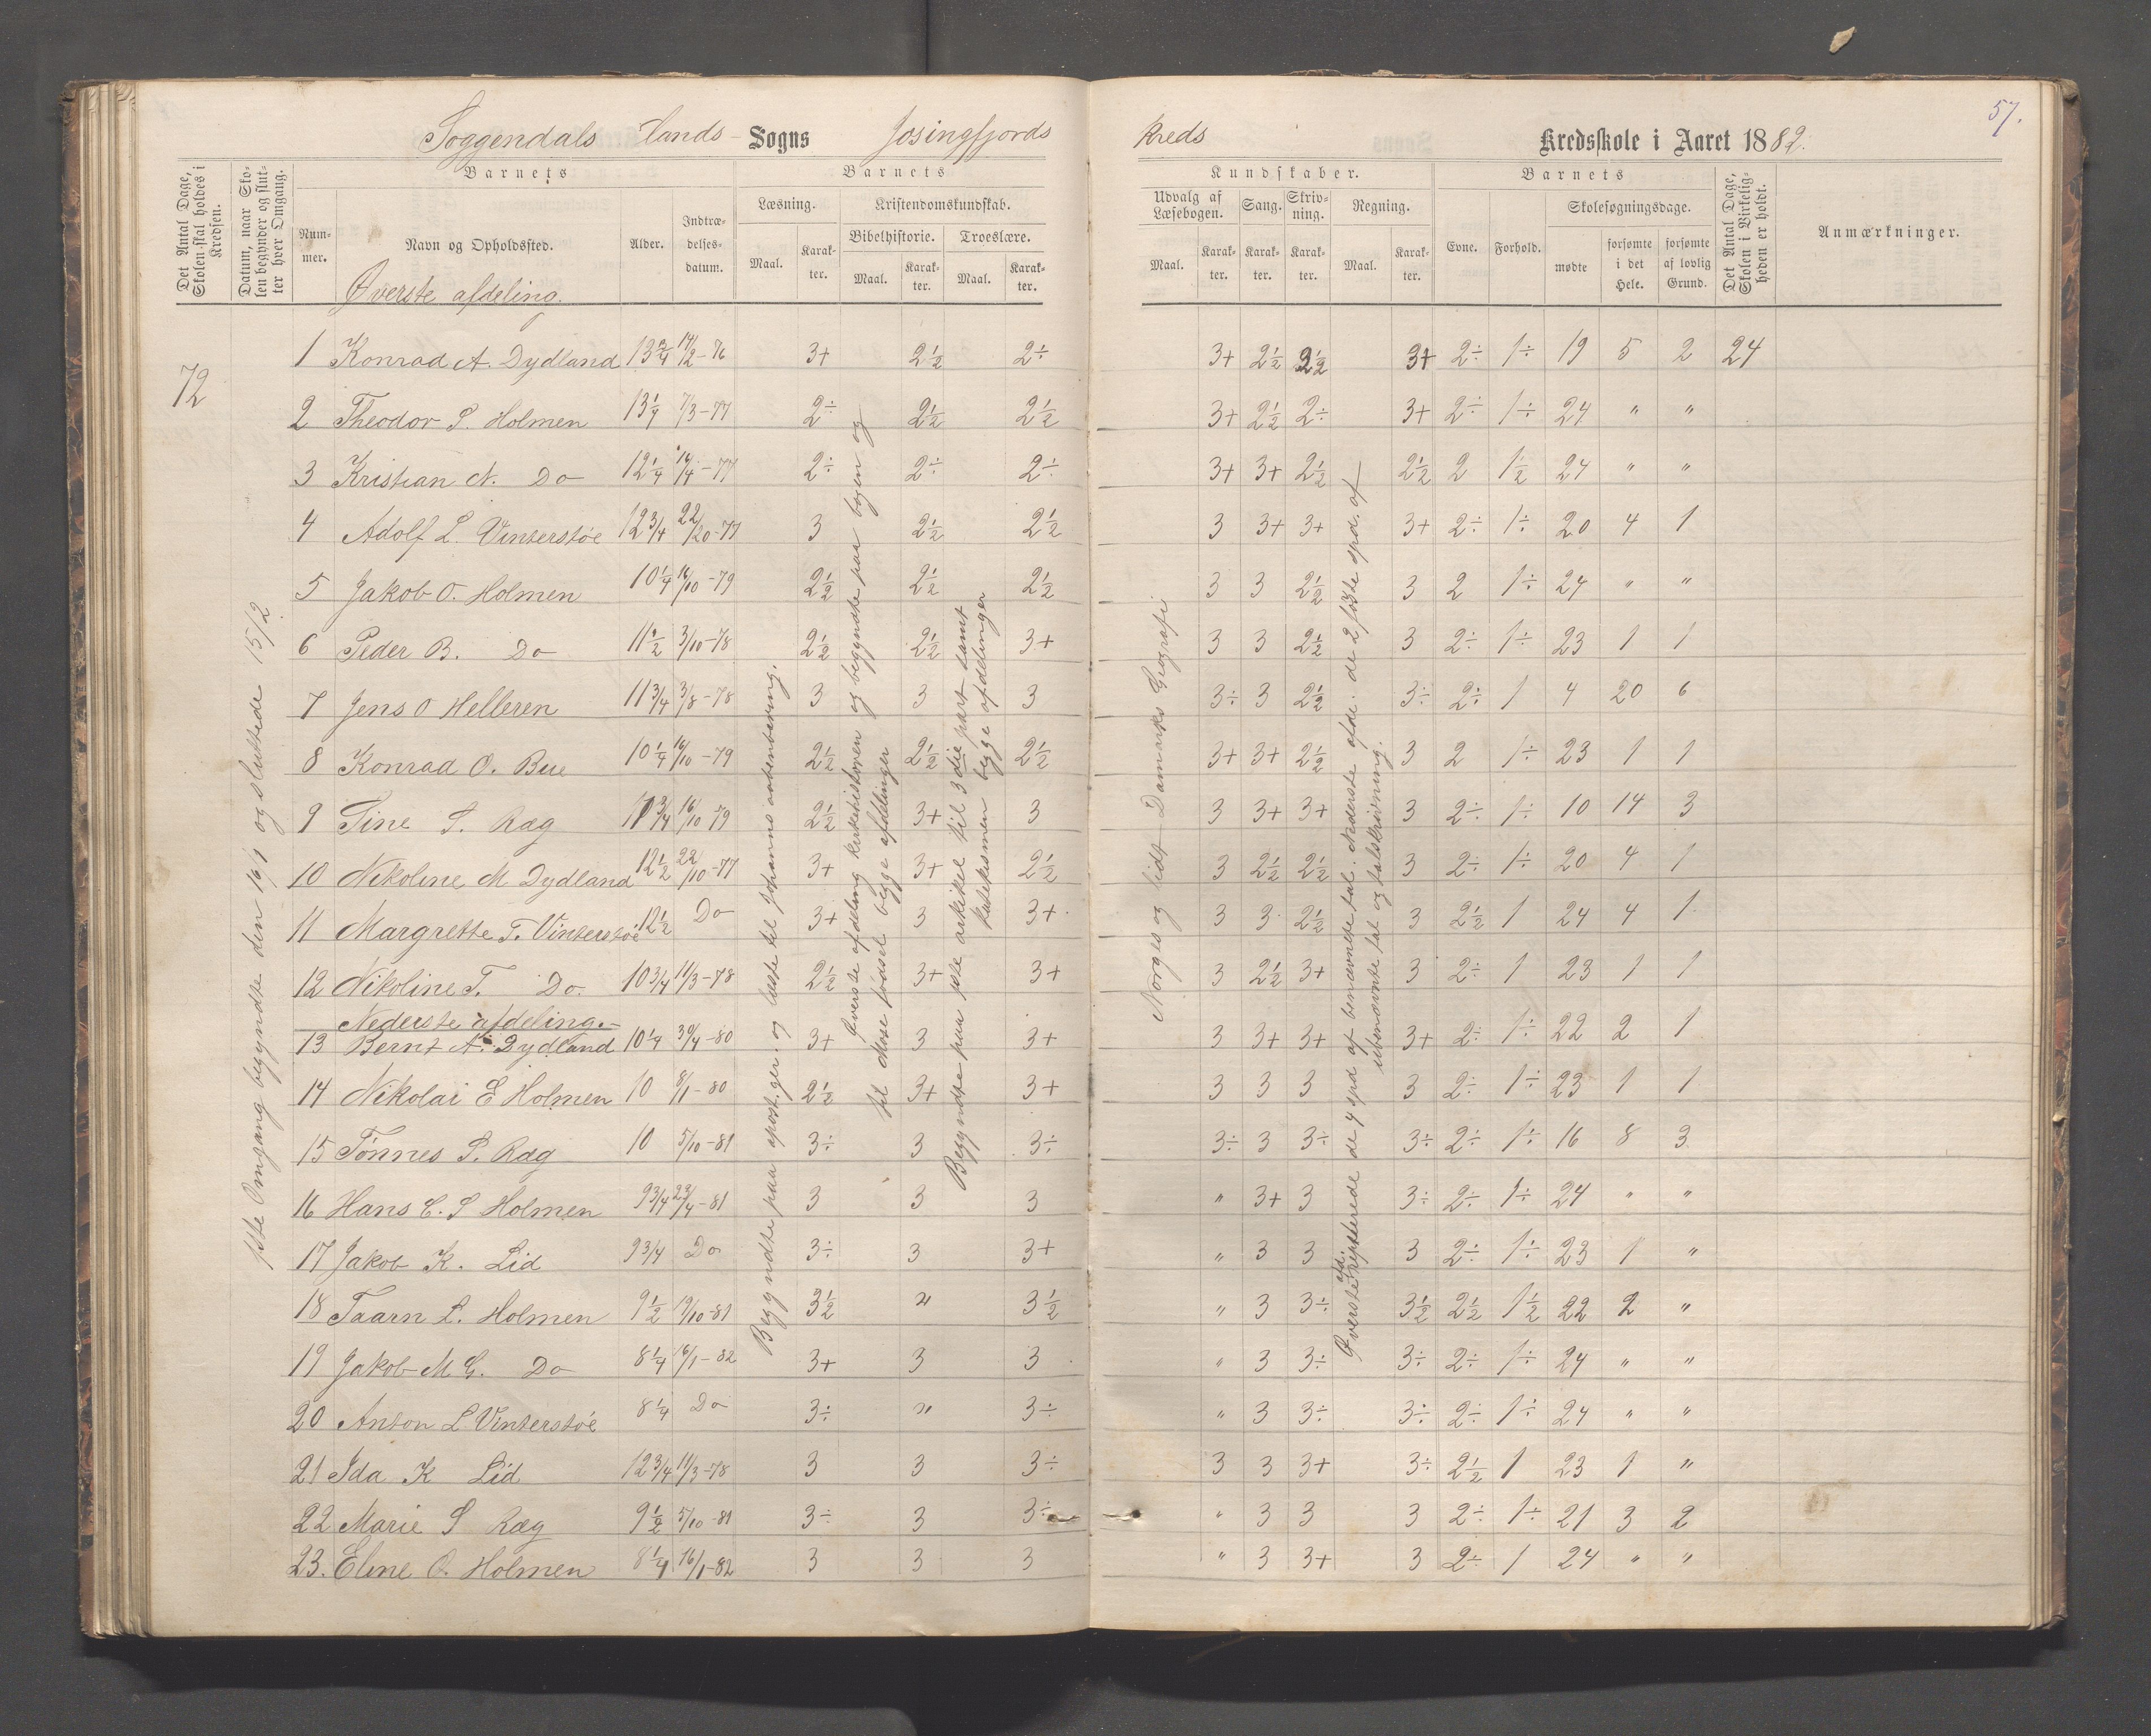 57.
Soggendals lands- Sogns Josingfjords kreds Kredsskole i Aaret 1882.
Det Antal Dage, Skolen skal holdes i Kredsen.
Datum, naar Skolen begynder og slutter hver Omgang.
Barnets
Nummer.
Navn og Opholdssted.
Alder.
Indtrædelsesdatum.
Barnets
Læsning.
Maal.
Karakter.
Kristendomskundskab.
Bibelhistorie.
Maal.
Karakter.
Troeslære.
Maal.
Karakter.
Kundskaber.
Udvalg af Læsebogen.
Maal.
Karakter.
Sang.
Karakter.
Skrivning.
Karakter.
Regning.
Maal.
Karakter.
Barnets
Evne.
Forhold.
Skolesøgningsdage.
mødte
forsømte i det Hele.
forsømte af lovlig Grund.
Det Antal Dage, Skolen i Virkeligheden er holdt.
Anmærkninger.
Øverste afdeling.
72
1ste Omgang begyndte den 16/1 og sluttede 15/2
1 Konrad A. Dydland 13 3/4 14/2-76 3+ 2½ 2÷ 3+ 2½ 2½ 3+ 2÷ 1÷ 19 5 2 24
2 Theodor S. Holmen 13¼ 7/3-77 2÷ 2½ 2½ 3+ 2½ 2÷ 3+ 2÷ 1÷ 24 " "
3 Kristian N. Do 12¼ 16/4-77 2÷ 2÷ 2÷ 3+ 3+ 2½ 2½ 2 1½ 24 " "
4 Adolf L. Vinterstøe 12 3/4 22/10-77 3 2½ 2½ 3 3+ 3+ 3+ 2÷ 1÷ 20 4 1
5 Jakob O. Holmen 10¼ 16/10-79 2½ 2½ 2½ 3 3 2½ 3 2 1÷ 24 " "
6 Peder B. Do 11½ 3/10-78 2½ 2½ 3+ 3 3 2½ 3 2÷ 1÷ 23 1 1
7 Jens O Helleren 11 3/4 3/8-78 3 3 3 3÷ 3 2½ 3÷ 2÷ 1 4 20 6
8 Konrad O. Bue 10¼ 16/10-79 2½ 2½ 2½ 3+ 3+ 2½ 3 2 1÷ 23 1 1
9 Tine S. Ræg 11 3/4 16/10 79 2½ 3+ 3 3 3+ 3+ 3 2÷ 1÷ 10 14 3
10 Nikoline M Dydland 12½ 22/10-77 3+ 3+ 2½ 3 2½ 2½ 3 2÷ 1÷ 20 4 1
11 Margrette T. Vinterstøe 12½ Do 3+ 3 3+ 3 3 2½ 3 2½ 1 24 4 1
12 Nikoline T. Do. 10 3/4 11/3-78 2½ 3+ 3+ 3 2½ 3+ 3 2÷ 1 23 1 1
Nederste afdeling.-
13 Bernt A. Dydland 10¼ 30/4-80 3+ 3 3+ 3 3+ 3+ 3+ 2÷ 1÷ 22 2 1
14 Nikolai E Holmen 10 8/1-80 2½ 3+ 3+ 3 3 3 3 2÷ 1÷ 23 1 1
15 Tønnes S. Ræg 10 5/10-81 3÷ 3 3÷ 3÷ 3 3÷ 3÷ 2÷ 1÷ 16 8 3
16 Hans C. S Holmen 9 3/4 23/4-81 3 3 3 " 3+ 3 3÷ 2÷ 1÷ 24 " "
17 Jakob K. Lid 9 3/4 Do 3÷ 3 3+ " 3 3 3 2÷ 1÷ 23 1 "
18 Taarn L. Holmen 9½ 19/10-81 3½ " 3½ " 3 3÷ 3½ 2½ 1½ 22 2 "
19 Jakob M G. Do 8¼ 16/1-82 3+ 3 3 " 3 3÷ 3÷ 2÷ 1÷ 24 " "
20 Anton L Vinterstøe 8¼ Do 3÷ " 3÷ " 3 3÷ 3÷ 2÷ 1÷ 24 " "
21 Ida K Lid 12 3/4 11/3-78 3 3 3÷ 3 3 3+ 3÷ 2½ 1 23 1 "
22 Marie S Ræg 9½ 5/10-81 3÷ 3 3÷ " 3 3 3 2÷ 1÷ 21 3 2
23. Eline O. Holmen 8¼ 16/1-82 3 3 3 " 3 3+ 3 2÷ 1 24 " "
Begyndte paa apost. ger. og læste til Johans aabenbaring.
Øverste afdeling kirkehistorien og begyndte paa bogen og
til Mose fødsel begge afdelinger
Begyndte paa 1ste artikel til 3die part samt
katekismen begge afdelinger
Norges og lidt Danmarks Geografi
Øverste afd. repeterede de 4 spd af benævnte tal. Nederste afde. de 2 første spd. af
ubenævnte tal og talskrivning.